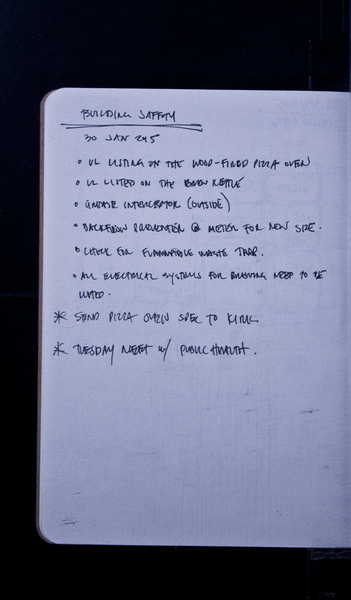 BUILDING SAFETY
30 JAN 245
• UL LISTING ON THE WOOD-FIRED PIZZA OVEN
• UL LISTED ON THE BREW KETTLE
• GREASE INTERCEPTOR (OUTSIDE)
• BACKFLOW PREVENTION @ METER FOR NEW SIZE.
• CHECK FOR FLAMMABLE WASTE TRAP.
• ALL ELECTRICAL SYSTEMS FOR BREWING NEED TO BE
LISTED.
* SEND PIZZA OVEN SPEC TO KIRK
* TUESDAY MEET w/ PUBLIC HEALTH.